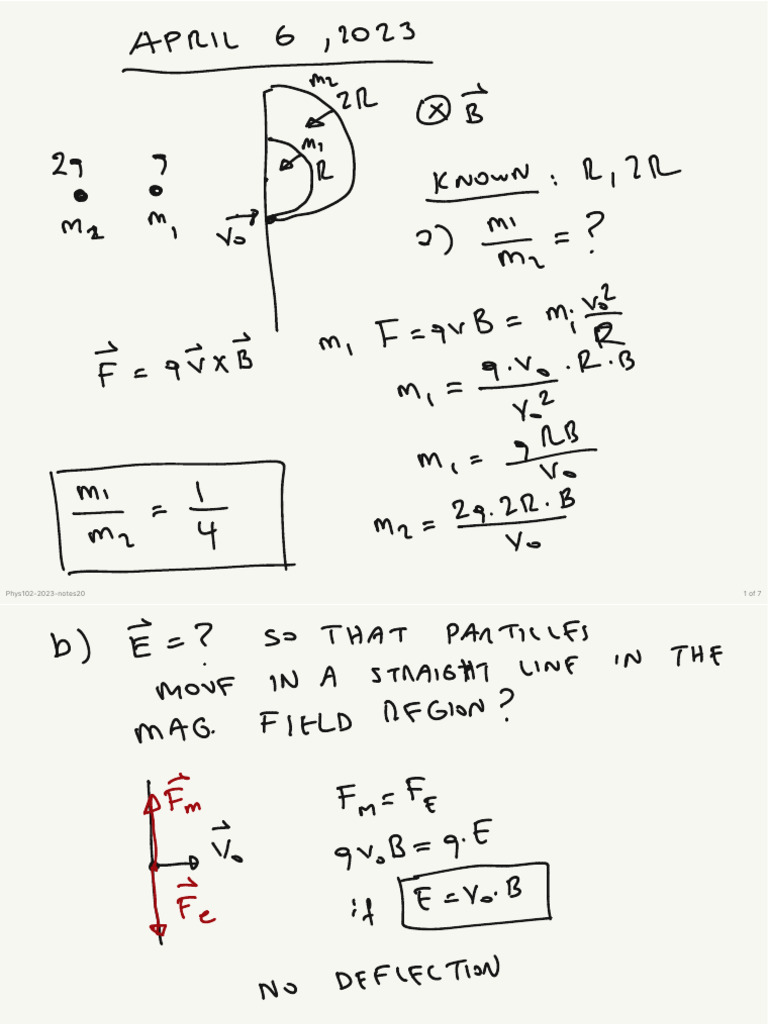 APRIL 6, 2023
m₂
2R
⊗ B⃗
m₁
R
2q q
m₂ m₁
V₀
KNOWN : R, 2R
a) m₁/m₂ = ?
F⃗ = qV⃗ × B⃗
m₁ F = qvB = m₁ v₀²/R
m₁ = q·V₀/V₀² · R·B
m₁ = qRB/V₀
m₁/m₂ = 1/4
m₂ = 2q·2R·B/V₀
Phys102-2023-notes20 1 of 7
b) E⃗ = ? SO THAT PARTICLES
MOVE IN A STRAIGHT LINE IN THE
MAG. FIELD REGION?
F⃗m
V⃗₀
F⃗e
F_M = F_E
qv₀B = q·E
if E = V₀·B
NO DEFLECTION